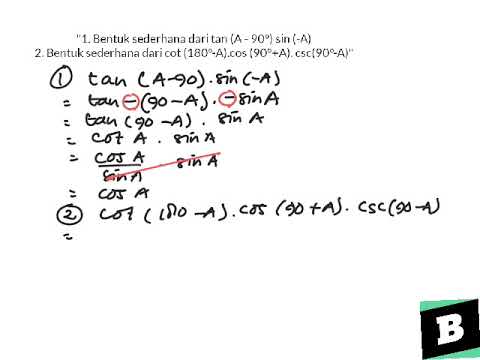 "1. Bentuk sederhana dari tan (A - 90°) sin (-A)
2. Bentuk sederhana dari cot (180°-A).cos (90°+A). csc(90°-A)"
① tan (A-90).sin(-A)
= tan -(90-A). -sin A
= tan (90-A). sin A
= cot A . sin A
= cos A/sin A . sin A
= cos A
② cot (180-A).cos (90+A). csc(90-A)
=
B